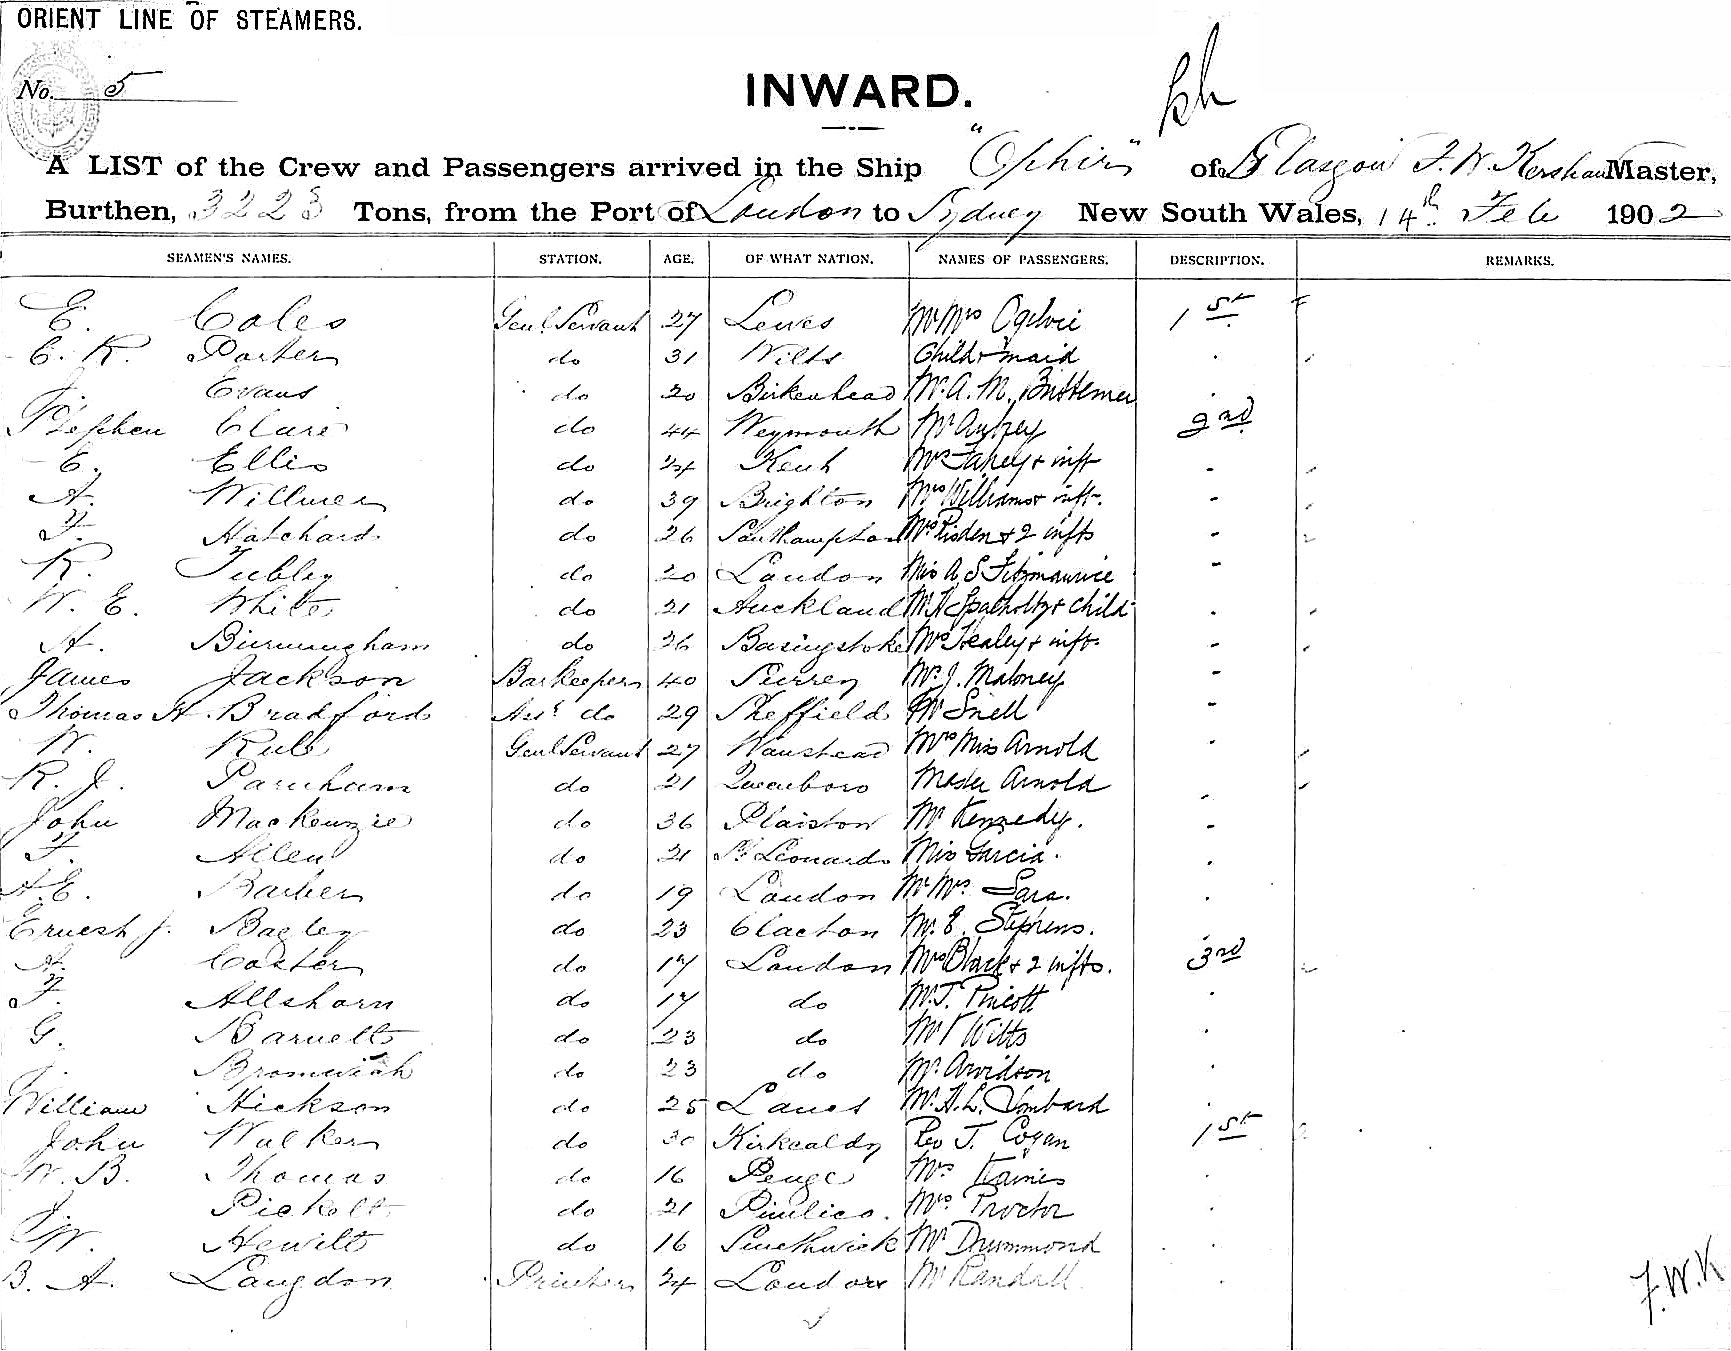 ORIENT LINE OF STEAMERS.
No. 5
INWARD.
A LIST of the Crew and Passengers arrived in the Ship "Ophir" of Glasgow F. W. Kershaw Master,
Burthen, 3223 Tons, from the Port of London to Sydney New South Wales, 14th Feb 1902
SEAMEN'S NAMES. STATION. AGE. OF WHAT NATION. NAMES OF PASSENGERS. DESCRIPTION. REMARKS.
E. Coles Genl Servant 27 Lewes Mr Mrs Ogilvie 1st
C. K. Porter do 31 Wilts Child + maid
J. Evans do 20 Birkenhead Mr. A. M.
Stephen Clare do 44 Weymouth Mr Aubrey 2nd
E. Ellis do 24 Kent Mrs Fahey + inft
A. Willmer do 39 Brighton Mrs Williams + inft.
F. Hatchard do 26 Southampton Mrs Risden + 2 infts
R. Tubley do 20 London Miss A S Fitzmaurice
W. E. White do 21 Auckland Mr A Spatholtz + child
A. Birmingham do 26 Basingstoke Mrs Healey + inft.
James Jackson Barkeeper 40 Surrey Mr. J. Maloney
Thomas H. Bradford Asst do 29 Sheffield Mr Snell
W. Rule Genl Servant 27 Wanstead Mrs Miss Arnold
R. J. Parnham do 21 Queenboro Master Arnold
John Mackenzie do 36 Plaistow Mr Kennedy.
F. Allen do 21 St Leonards Miss Garcia.
A. E. Barber do 19 London Mr Mrs. Sara.
Ernest J. Bagley do 23 Clacton Mr. E. Stephens.
A. Coster do 17 London Mrs Black + 2 infts. 3rd
F. Allshorn do 17 do Mr. J. Pincott
G. Barnett do 23 do Mr V Witts
J. Bromwich do 23 do Mr. Arvidson
William Hickson do 25 Lancs Mr. H. L. Lombard
John Walker do 30 Kirkcaldy Rev J. Cogan 1st
W. B. Thomas do 16 Penge Mrs Raines
J. Pickett do 21 Pimlico. Mrs. Proctor
W. Hewitt do 16 Smethwick Mr Drummond
B. A. Langdon Printer 24 London Mr Randall
F. W. K